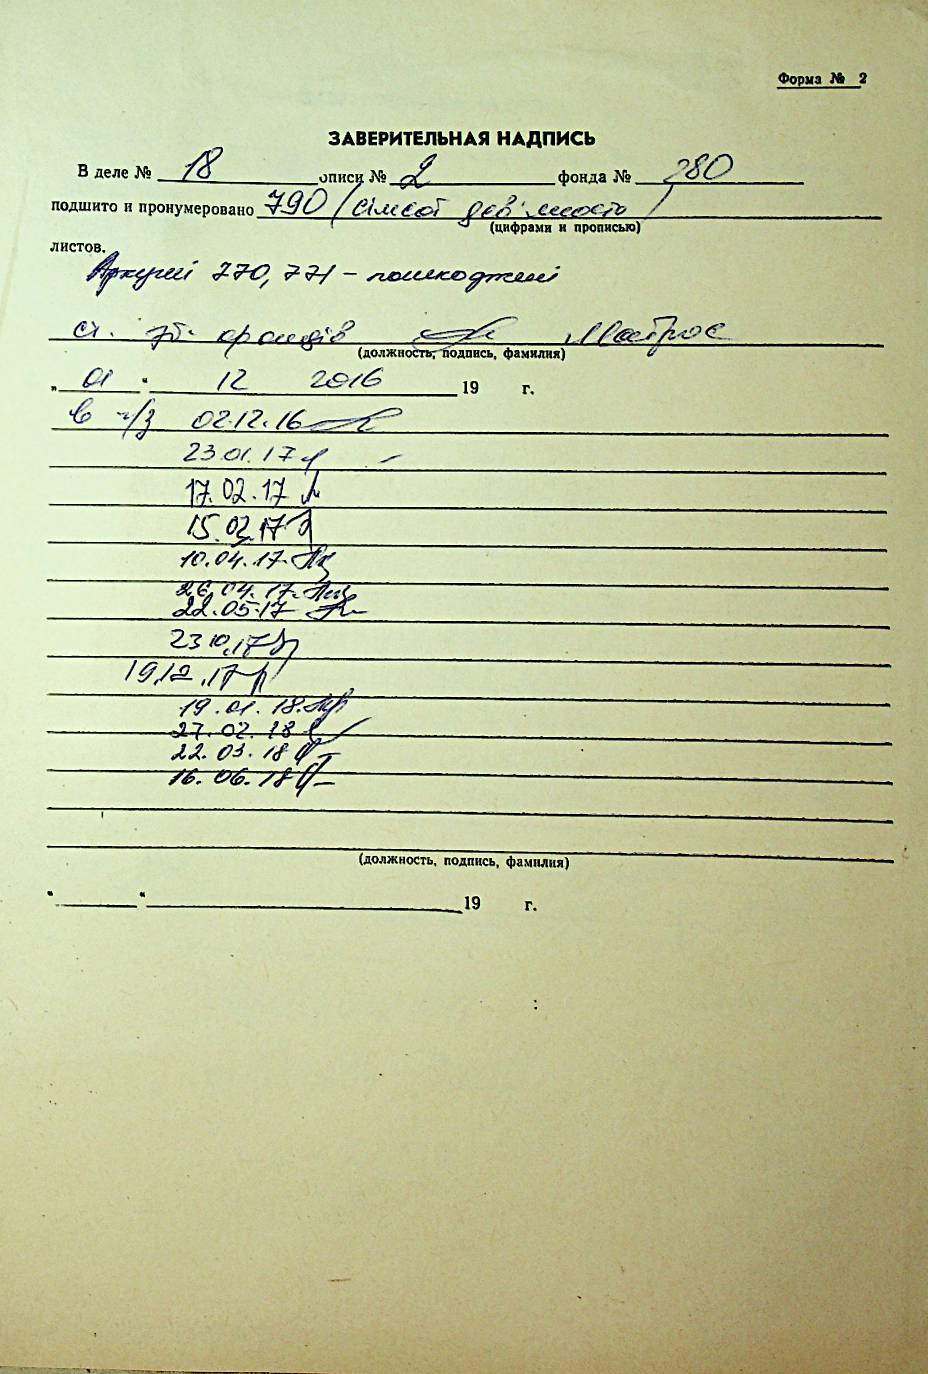 Форма № 2
ЗАВЕРИТЕЛЬНАЯ НАДПИСЬ
В деле № 18 описи № 2 фонда № 280
подшито и пронумеровано 790 (сімсот дев'яносто)
(цифрами и прописью)
листов.
Аркуші 770, 771 – пошкоджені
ст. зб. фондів Матрос
(должность, подпись, фамилия)
„ 01 “ 12 2016 19 г.
в ч/з 02.12.16
23.01.17
17.02.17
15.02.17
10.04.17
26.04.17
22.05.17
23.10.17
19.12.17
19.01.18
27.02.18
22.03.18
16.06.18
(должность, подпись, фамилия)
“ “ 19 г.